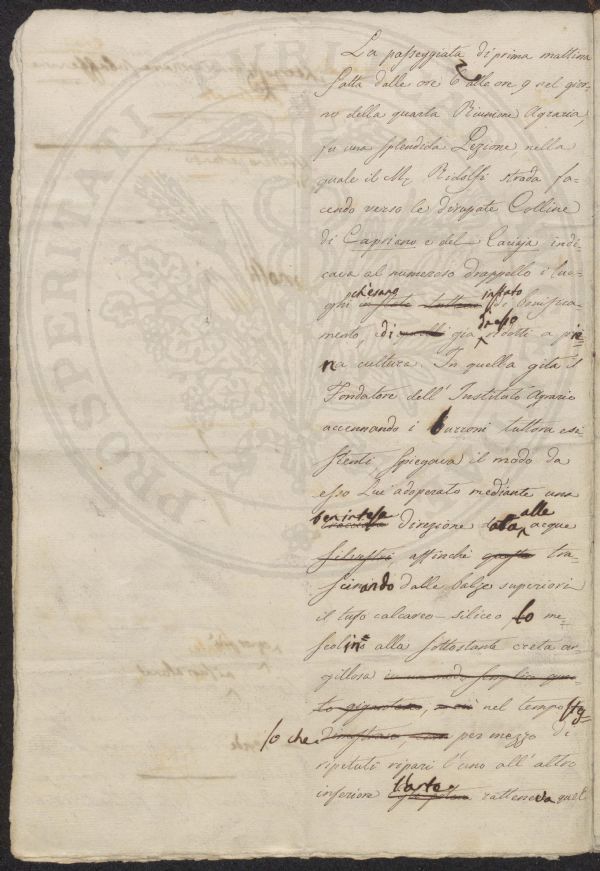 La passeggiata di prima mattina
fatta dalle ore 6 alle ore 9 nel gior-
no della quarta Riunione Agraria,
fu una splendida Lezione nella
quale il M. Ridolfi strada fa-
cendo verso le dirupate Colline
di Capriano e del Cacciaja indi-
cava al numeroso drappello i luo-
ch'erano in stato
ghi in stato tuttora di bonifica-
di esso
mento, di quelli già ridotti a pie-
na cultura. In quella gita il
Fondatore dell'Instituto Agrario
accennando i burroni tuttora esi-
stenti spiegava il modo da
esso Lui adoperato mediante una
ben intesa direzione data alle acque
silvestri, affinché queste tra-
scinando dalle balze superiori
il tufo calcareo-siliceo lo me-
scolino alla sottostante creta ar-
gillosa in un modo semplice quan-
to gigantesco, nel tempo stes-
lo che per mezzo di
ripetuti ripari l'uno all'altro
l'arte
inferiore rattenea quel